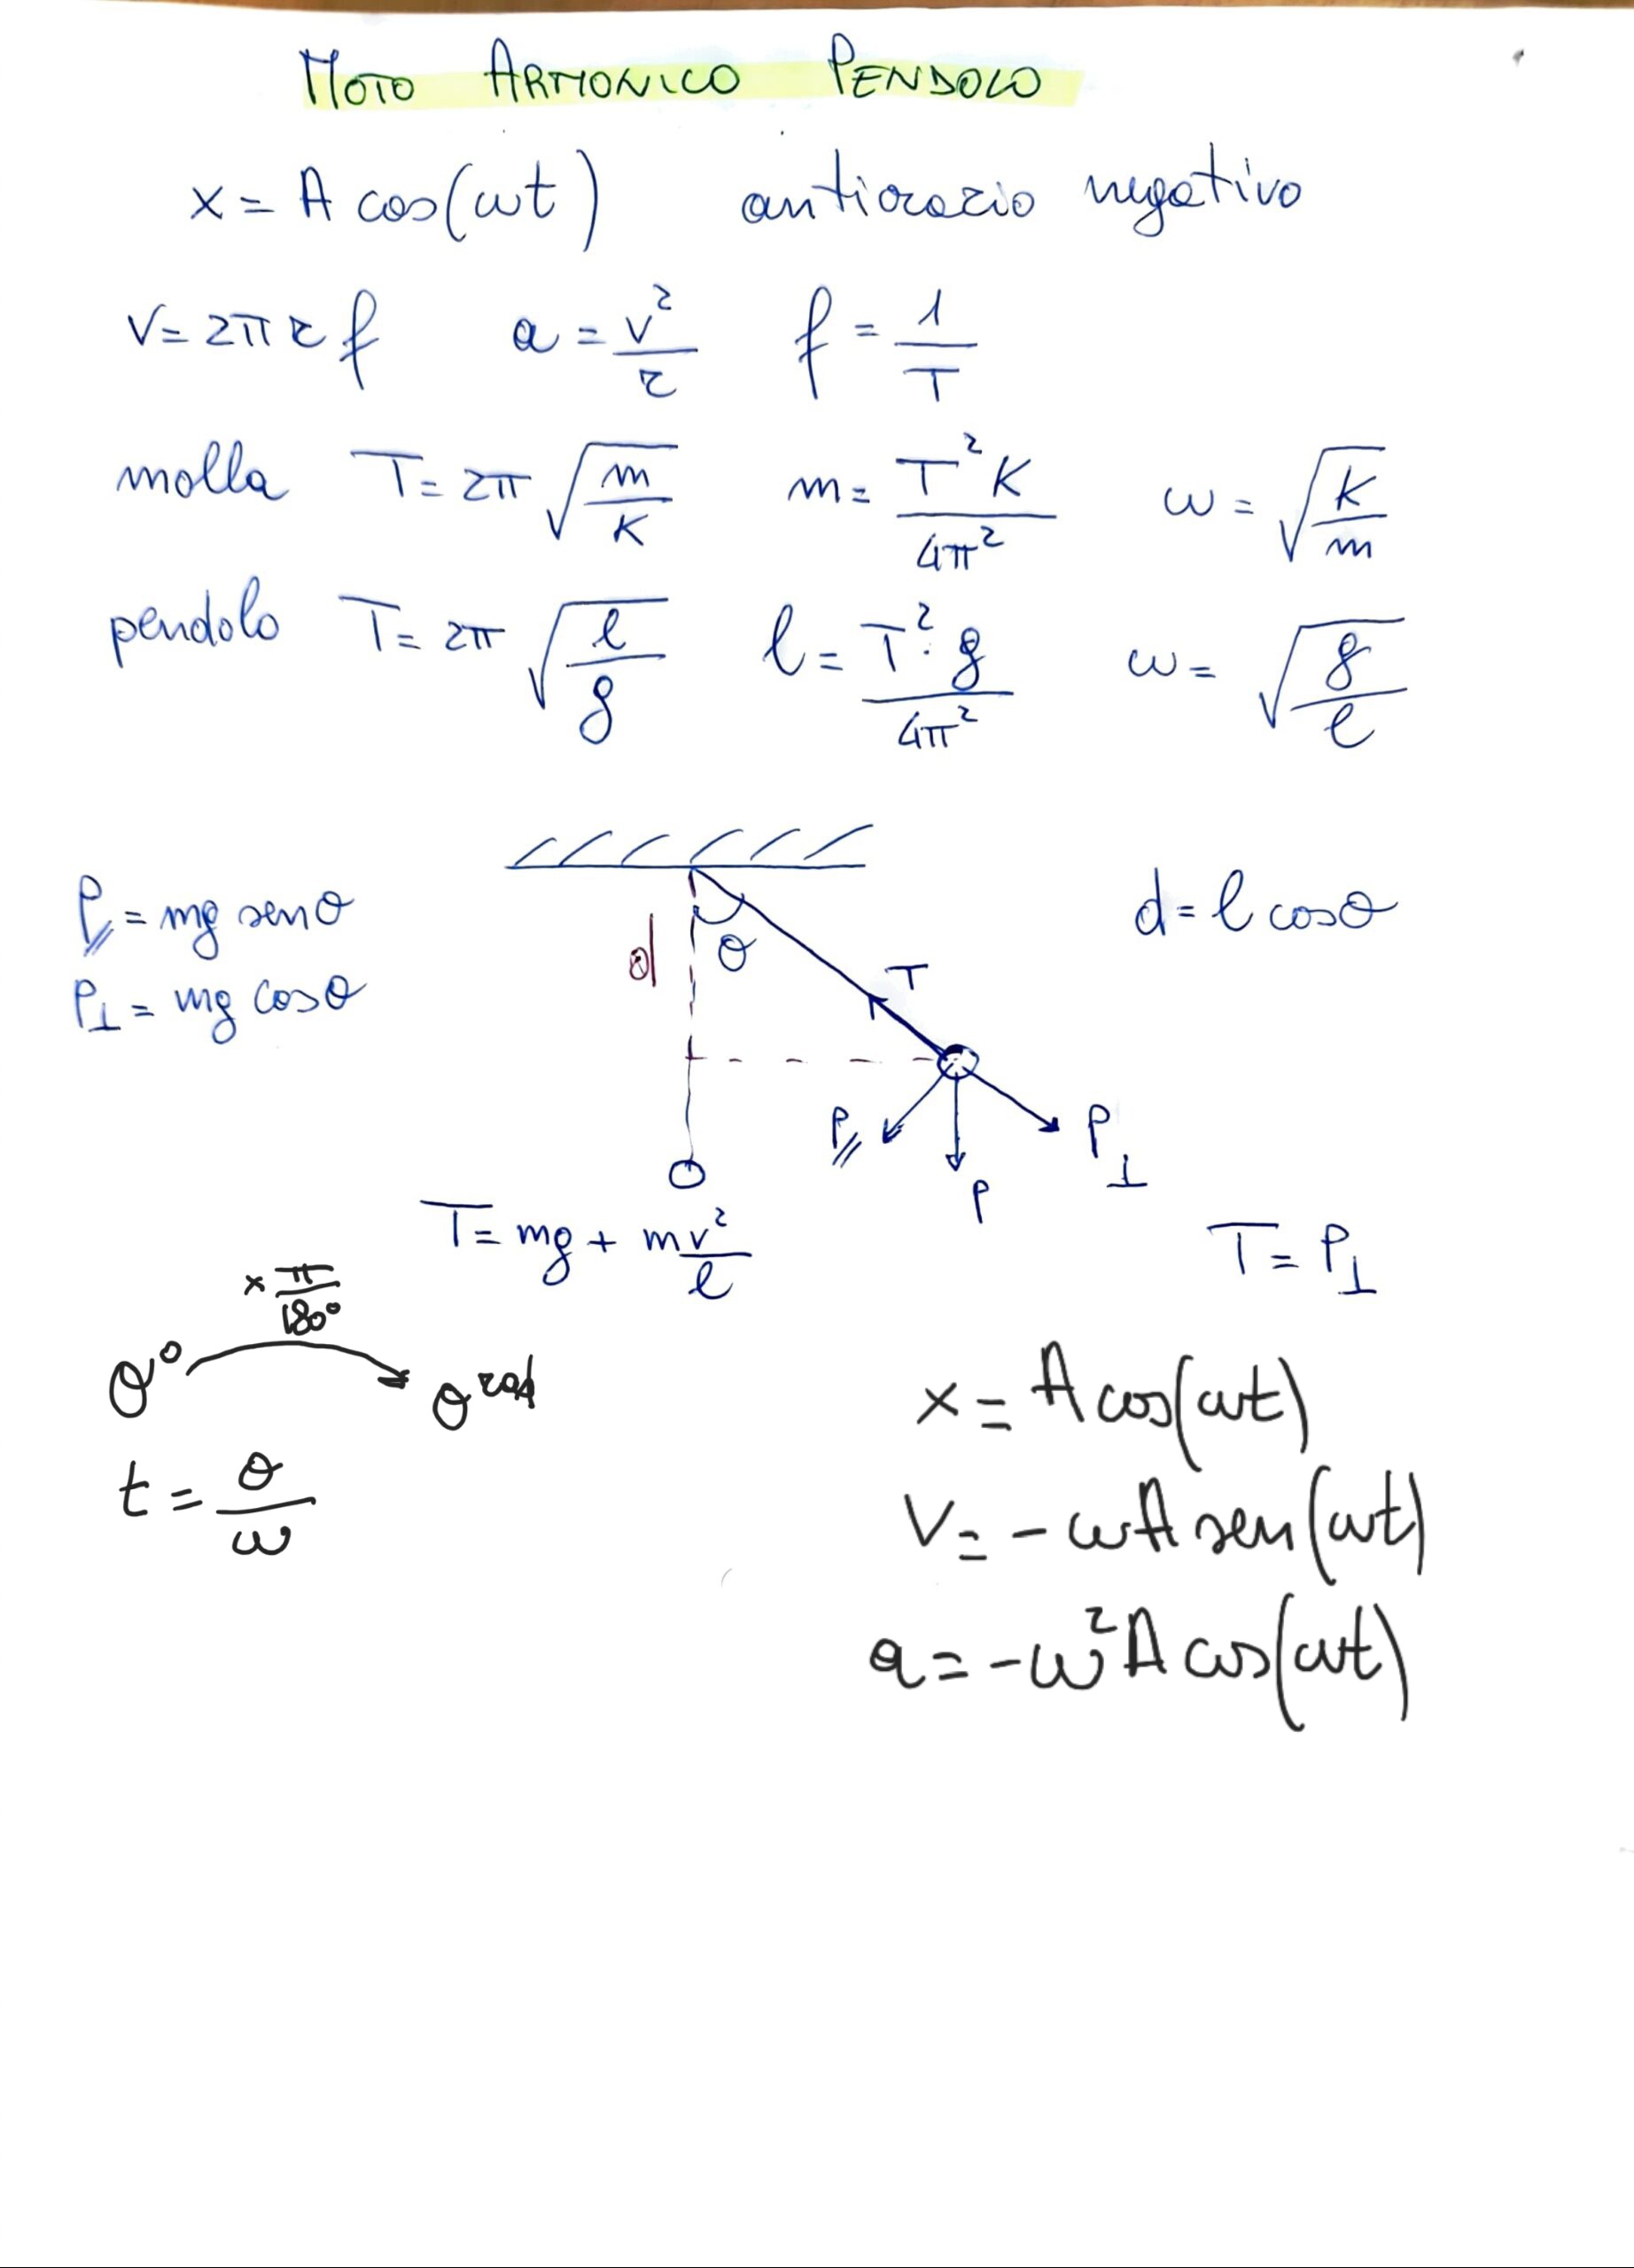 MOTO ARMONICO PENDOLO
x = A cos(ωt) antiorario negativo
v = 2π r f a = v²/r f = 1/T
molla T = 2π √(m/k) m = T² k / 4π² ω = √(k/m)
pendolo T = 2π √(l/g) l = T² · g / 4π² ω = √(g/l)
P// = mg senθ
P⊥ = mg cosθ
d
θ
T
d = l cosθ
P//
P
P⊥
T = mg + mv²/l
T = P⊥
× π/180°
θ° θ rad
t = θ/ω
x = A cos(ωt)
v = - ωA sen(ωt)
a = - ω² A cos(ωt)